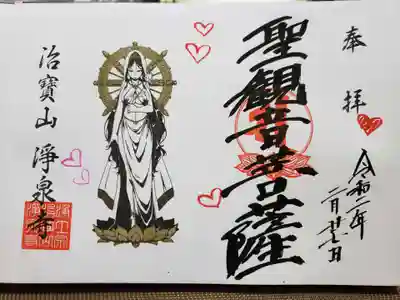 奉拝
令和二年
二月廿二日
聖観音菩薩
治寶山 淨泉寺